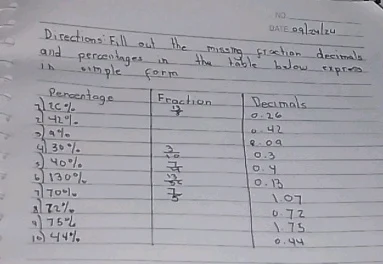 NO.
DATE 09/24/24
Directions: Fill out the missing fraction decimals
and percentages in the table below express
in simple form
Percentage Fraction Decimals
1) 26% 13 0.26
2) 42% 0.42
3) 9% 0.09
4) 30% 3/10 0.3
5) 40% 0.4
6) 130% 0.13
7) 70% 7 1.07
8) 72% 0.72
9) 75% 1.75
10) 44% 0.44